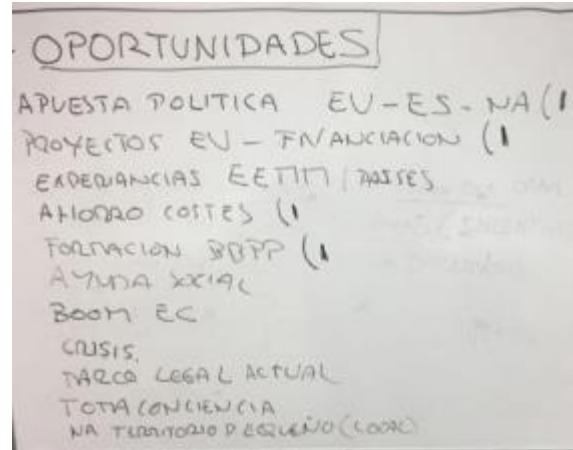 OPORTUNIDADES
APUESTA POLITICA EU-ES-NA (1
PROYECTOS EU - FINANCIACION (1
EXPERIANCIAS EETTTT / PAISES
AHORRO COSTES (1
FORMACION BBPP (1
AYUDA SOCIAL
BOOM EC
CRISIS.
MARCO LEGAL ACTUAL
TOMA CONCIENCIA
NA TERRITORIO PEQUEÑO (LOCAL)